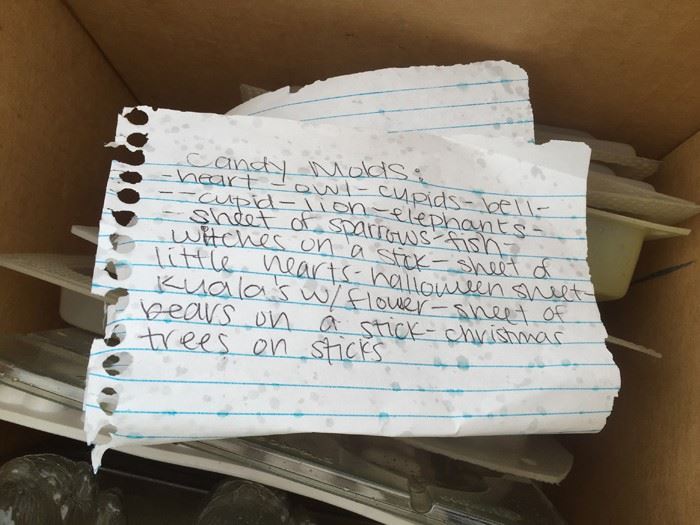 Candy Molds:
-heart-owl-cupids-bell-
--cupid-lion-elephants-
--sheet of sparrows-fish-
witches on a stick-sheet of
little hearts-halloween sheet-
Kuala's w/flower-sheet of
bears on a stick-christmas
trees on sticks